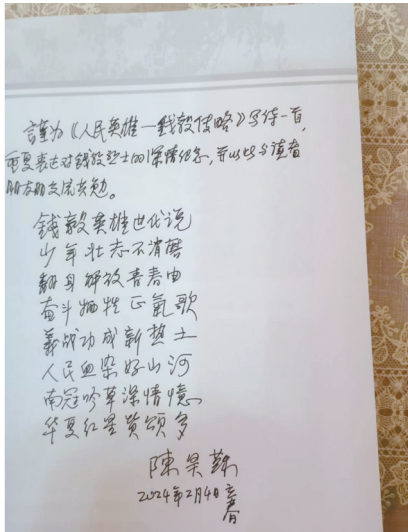 謹为《人民英雄—钱毅传略》写诗一首，
重复表达对钱毅烈士的深情纪念，并以此与读者
朋友们交流共勉。
錢毅英雄世代说
少年壮志不消磨
翻身解放青春曲
奋斗牺牲正氣歌
義战功成新热土
人民血染好山河
南冠吟草深情憶
华夏红星赞颂多
陳昊
2024年2月4日立春